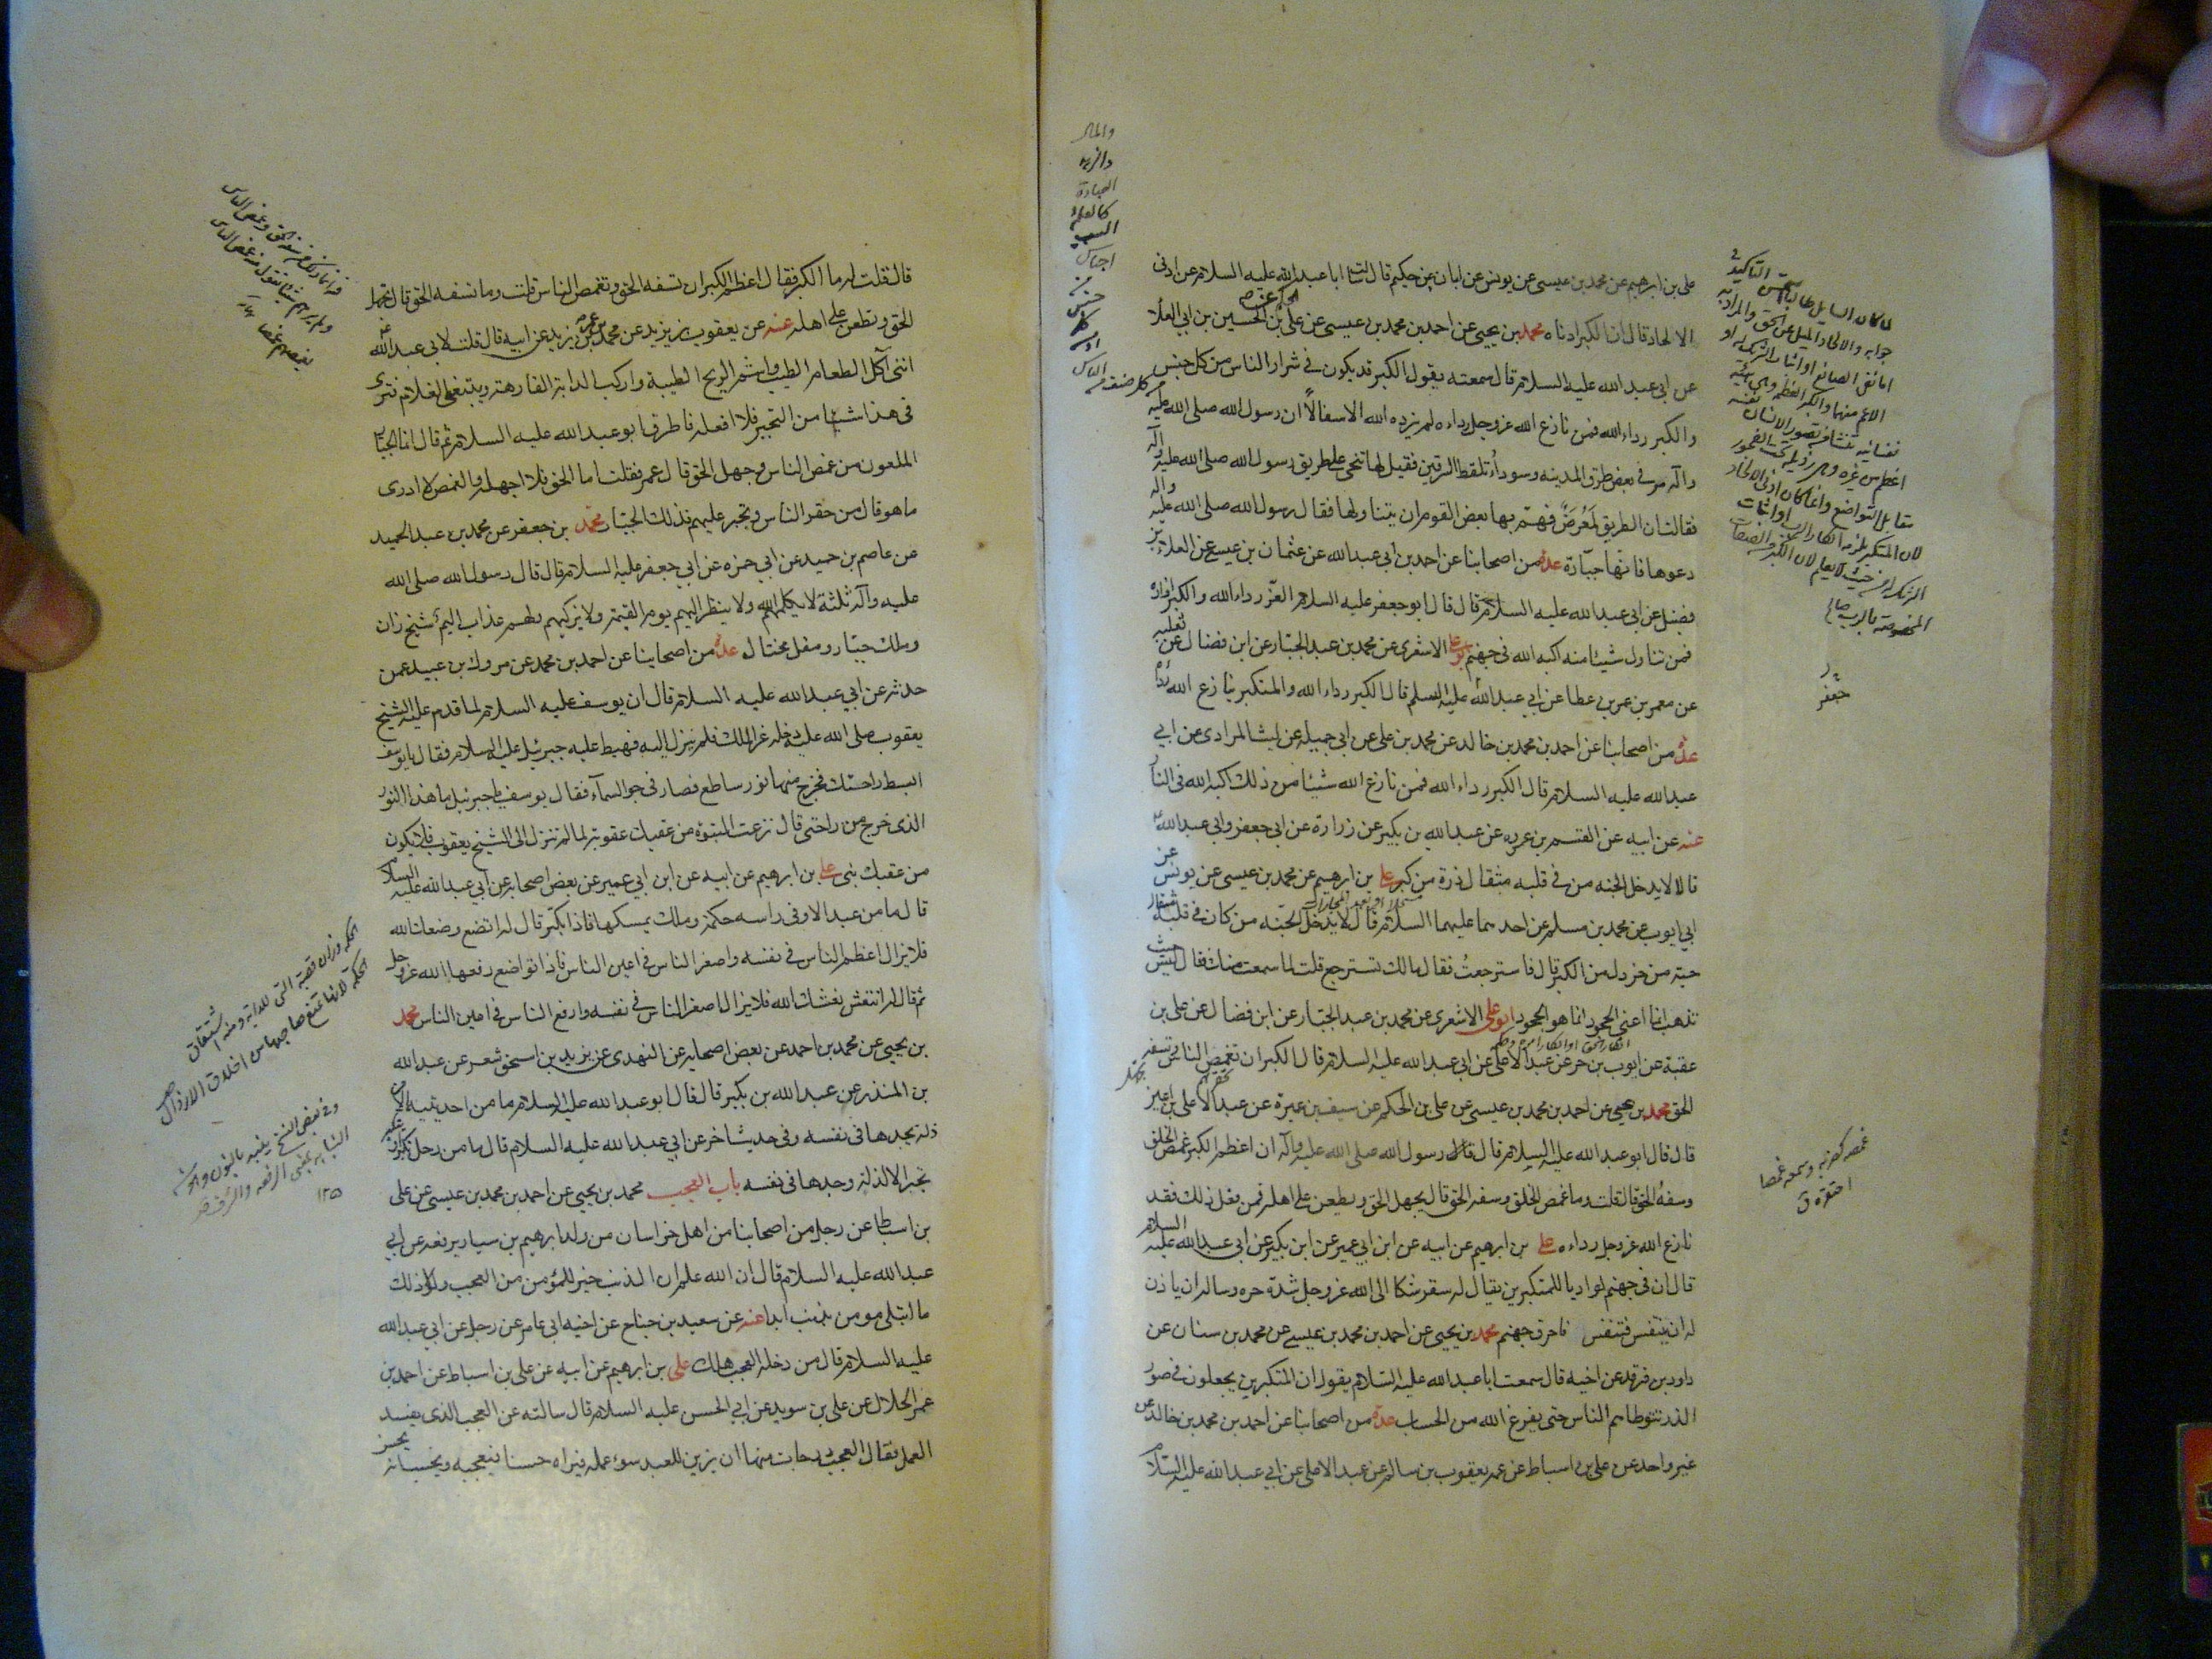 على بن ابرهيم عن محمد بن عيسى عن يونس عن ابان عن حكيم قال سالت ابا عبد الله عليه السلام عن ادنى
الالحاد قال ان الكبر ادناه محمد بن يحيى عن احمد بن محمد بن عيسى عن على بن الحكم عن الحسين بن ابى العلا
عن ابى عبد الله عليه السلام قال سمعته يقول الكبر قد يكون فى شرار الناس من كل جنس
والكبر رداء الله فمن نازع الله عز وجل رداءه لم يزده الله الا سفالاً ان رسول الله صلى الله عليه
وآله مر فى بعض طرق المدينه وسوداء تلقط السرقين فقيل لها تنحى على طريق رسول الله صلى الله عليه وآله
فقالت ان الطريق لمعرض فهم بها بعض القوم ان يتناولها فقال رسول الله صلى الله عليه وآله
دعوها فانها جبارة عدة من اصحابنا عن احمد بن ابى عبد الله عن عثمان بن عيسى عن العلاء بن
فضيل عن ابى عبد الله عليه السلام قال قال ابو جعفر عليه السلام العز رداء الله والكبر ازاره
فمن تناول شيئا منه اكبه الله فى جهنم ابو على الاشعرى عن محمد بن عبد الجبار عن ابن فضال عن ثعلبه
عن معمر بن عمر بن عطا عن ابى عبد الله عليه السلم قال الكبر رداء الله والمتكبر ينازع الله رداه
عدة من اصحابنا عن احمد بن محمد بن خالد عن محمد بن على عن ابى جميله عن ليث المرادى عن ابى
عبد الله عليه السلام قال الكبر رداء الله فمن نازع الله شيئا من ذلك اكبه الله فى النار
عنه عن ابيه عن القسم بن عروه عن عبد الله بن بكير عن زرارة عن ابى جعفر وابى عبد الله
قالا لا يدخل الجنه من فى قلبه مثقال ذرة من كبر على بن ابرهيم عن محمد بن عيسى عن يونس عن
ابى ايوب عن محمد بن مسلم عن احدهما عليهما السلام قال لا يدخل الجنه من كان فى قلبه مثقال
حبه من خردل من الكبر قال فاسترجعت فقال مالك تسترجع قلت لما سمعت منك فقال ليس حيث
تذهب انما اعنى الجحود انما هو الجحود ابو على الاشعرى عن محمد بن عبد الجبار عن ابن فضال عن على بن
عقبة عن ايوب بن حر عن عبد الاعلى عن ابى عبد الله عليه السلام قال الكبر ان تغمص الناس وتسفه
الحق محمد بن يحيى عن احمد بن محمد بن عيسى عن على بن الحكم عن سيف بن عميرة عن عبد الاعلى بن اعين
قال قال ابو عبد الله عليه السلام قال قال رسول الله صلى الله عليه وآله ان اعظم الكبر غمص الخلق
وسفه الحق قال قلت وما غمص الخلق وسفه الحق قال يجهل الحق ويطعن على اهله فمن فعل ذلك فقد
نازع الله عز وجل رداءه على بن ابرهيم عن ابيه عن ابن ابى عمير عن ابن بكير عن ابى عبد الله عليه السلام
قال ان فى جهنم لواديا للمتكبرين يقال له سقر شكا الى الله عز وجل شدة حره وساله ان ياذن
له ان يتنفس فتنفس فاحرق جهنم محمد بن يحيى عن احمد بن محمد بن عيسى عن محمد بن سنان عن
داود بن فرقد عن اخيه قال سمعت ابا عبد الله عليه السلام يقول ان المتكبرين يجعلون فى صور
الذر تتوطاهم الناس حتى يفرغ الله من الحساب عدة من اصحابنا عن احمد بن محمد بن خالد عن
غير واحد عن على بن اسباط عن عمه يعقوب بن سالم عن عبد الاعلى عن ابى عبد الله عليه السلام
جعفر
قال قلت له ما الكبر فقال اعظم الكبر ان تسفه الحق وتغمص الناس قلت وما تسفه الحق قال تجهل
الحق وتطعن على اهله عنه عن يعقوب بن يزيد عن محمد بن عمر بن يزيد عن ابيه قال قلت لابى عبد الله
اننى آكل الطعام الطيب واشم الريح الطيبة واركب الدابة الفارهة ويتبعنى الغلام فترى
فى هذا شيئا من التجبر فلا افعله فاطرق ابو عبد الله عليه السلام ثم قال انما الجبار
الملعون من غمص الناس وجهل الحق قال عمر فقلت اما الحق فلا اجهله والغمص لا ادرى
ما هو قال من حقر الناس وتجبر عليهم فذلك الجبار محمد بن جعفر عن محمد بن عبد الحميد
عن عاصم بن حميد عن ابى حمزه عن ابى جعفر عليه السلام قال قال رسول الله صلى الله
عليه وآله ثلثة لا يكلمهم الله ولا ينظر اليهم يوم القيمة ولا يزكيهم ولهم عذاب اليم شيخ زان
وملك جبار ومقل مختال عدة من اصحابنا عن احمد بن محمد عن مروك بن عبيد عمن
حدثه عن ابى عبد الله عليه السلام قال ان يوسف عليه السلام لما قدم عليه الشيخ
يعقوب صلى الله عليه دخله عز الملك فلم ينزل اليه فهبط عليه جبرئيل عليه السلام فقال يا يوسف
ابسط راحتك فخرج منها نور ساطع فصار فى جو السمآء فقال يوسف يا جبرئيل ما هذا النور
الذى خرج من راحتى قال نزعت النبوة من عقبك عقوبة لما لم تنزل الى الشيخ يعقوب فلا يكون
من عقبك نبى على بن ابرهيم عن ابيه عن ابن ابى عمير عن بعض اصحابه عن ابى عبد الله عليه السلام
قال ما من عبد الا وفى راسه حكمة وملك يمسكها فاذا تكبر قال له اتضع وضعك الله
فلا يزال اعظم الناس فى نفسه واصغر الناس فى اعين الناس فاذا تواضع رفعها الله عز وجل
ثم قال له انتعش نعشك الله فلا يزال اصغر الناس فى نفسه وارفع الناس فى اعين الناس محمد
بن يحيى عن محمد بن احمد عن بعض اصحابه عن النهدى عن يزيد بن اسحق شعر عن عبد الله
بن المنذر عن عبد الله بن بكير قال قال ابو عبد الله عليه السلام ما من احد يتيه الا من
ذلة يجدها فى نفسه وفى حديث اخر عن ابى عبد الله عليه السلام قال ما من رجل تكبر او
تجبر الا لذلة وجدها فى نفسه باب العجب محمد بن يحيى عن احمد بن محمد بن عيسى عن على
بن اسباط عن رجل من اصحابنا من اهل خراسان من ولد ابرهيم بن سيار يرفعه عن ابى
عبد الله عليه السلام قال ان الله علم ان الذنب خير للمؤمن من العجب ولولا ذلك
ما ابتلى مومن بذنب ابدا عنه عن سعيد بن جناح عن اخيه ابى عامر عن رجل عن ابى عبد الله
عليه السلام قال من دخله العجب هلك على بن ابرهيم عن ابيه عن على بن اسباط عن احمد بن
عمر الحلال عن على بن سويد عن ابى الحسن عليه السلام قال سالته عن العجب الذى يفسد
العمل فقال العجب درجات منها ان يزين للعبد سوء عمله فيراه حسنا فيعجبه ويحسب انه يحسن